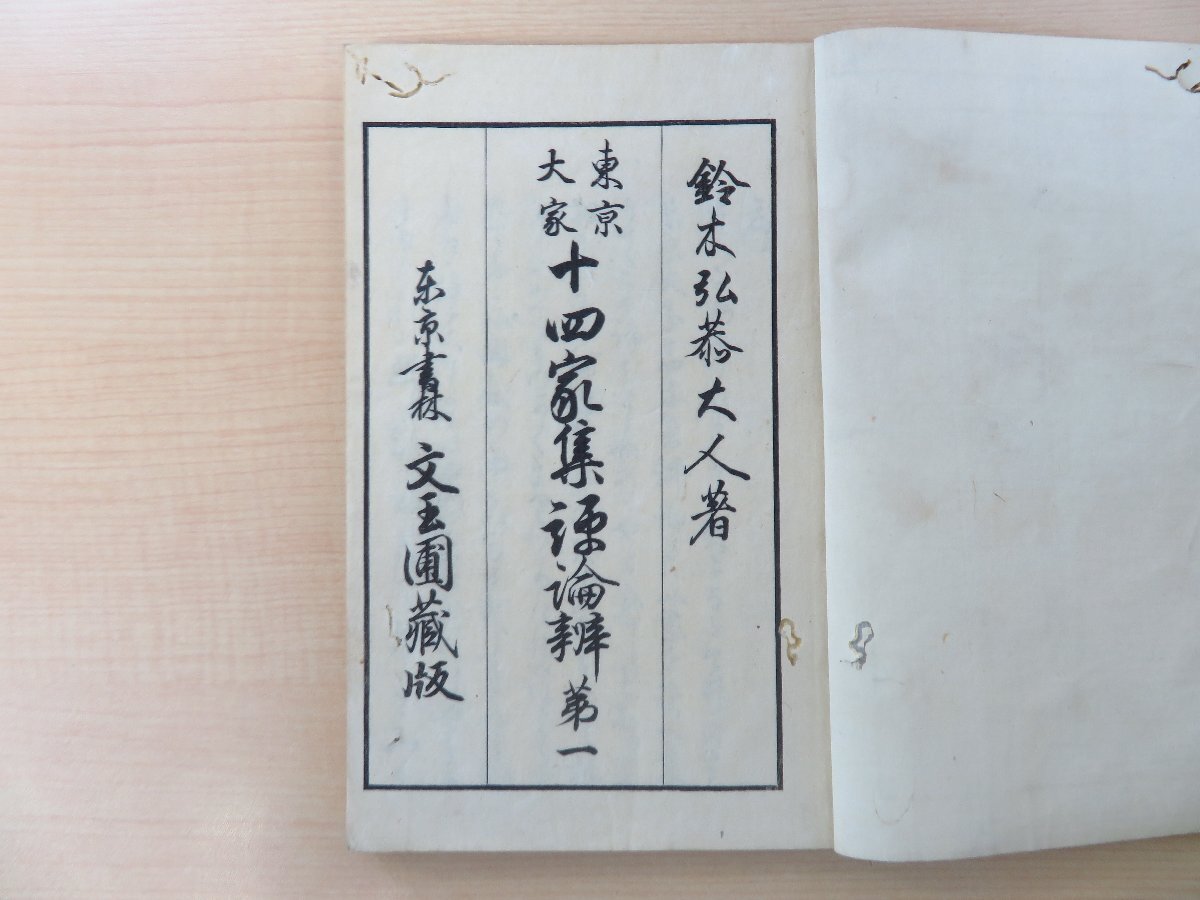 鈴木弘恭大人著
東京
大家
十四家集評論辨 第一
东京書林 文玉圃藏版